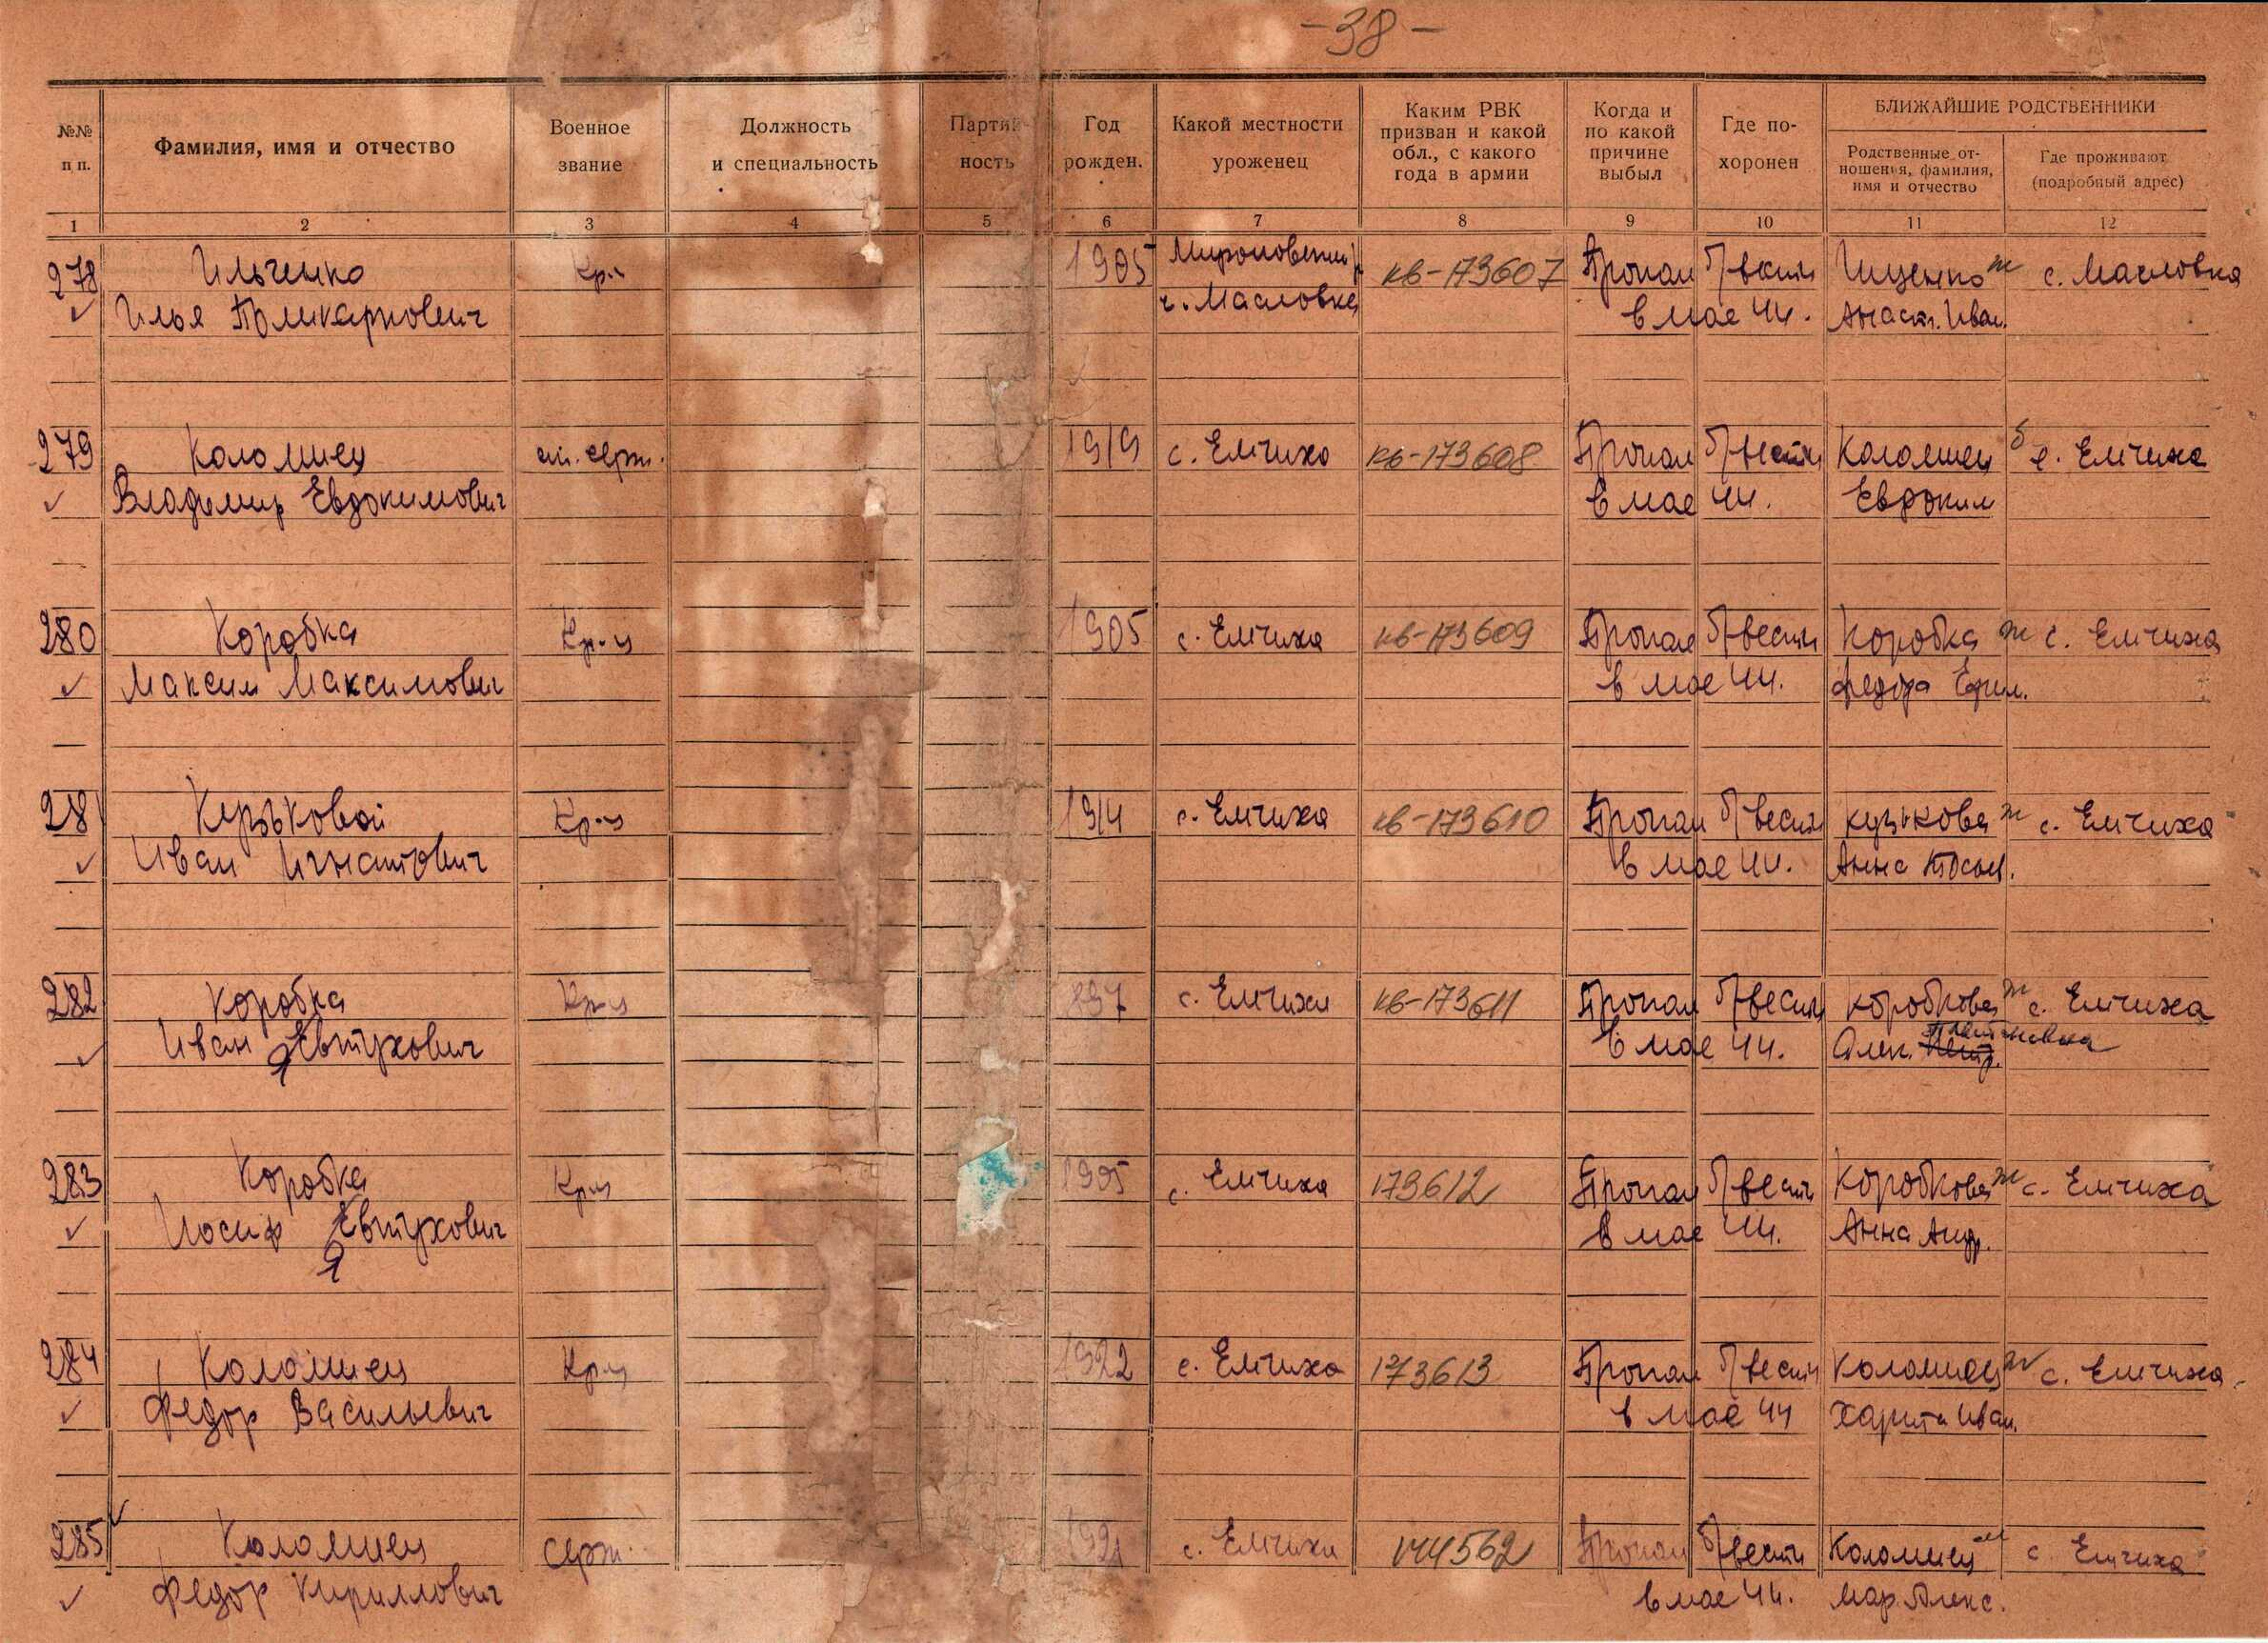 -38-
№№ п п.
Фамилия, имя и отчество
Военное звание
Должность и специальность
Партий- ность
Год рожден.
Какой местности уроженец
Каким РВК призван и какой обл., с какого года в армии
Когда и по какой причине выбыл
Где по- хоронен
БЛИЖАЙШИЕ РОДСТВЕННИКИ
Родственные от- ношения, фамилия, имя и отчество
Где проживают (подробный адрес)
1 2 3 4 5 6 7 8 9 10 11 12
278 Ильченко Кр-ц 1905 Мироновский р. кв-173607 Пропал б/вести Ищенко ж с. Масловка
Илья Поликарпович с. Масловка в мае 44. Анаст. Иван.
279 Коломиец мл. серж. 1919 с. Емчиха кв-173608 Пропал б/вести Коломиец с. Емчиха
Владимир Евдокимович в мае 44. Евдоким
280 Коробка Кр-ц 1905 с. Емчиха кв-173609 Пропал б/вести Коробка ж с. Емчиха
Максим Максимович в мае 44. Федора Ефим.
281 Кузьковой Кр-ц 1914 с. Емчиха кв-173610 Пропал б/вести Кузькова ж с. Емчиха
Иван Игнатович в мае 44. Анна
282 Коробка Кр-ц 897 с. Емчихи кв-173611 Пропал б/вести Коробкова ж с. Емчиха
Иван Явтухович в мае 44. Алек.
283 Коробка Кр-ц 1905 с. Емчиха 173612 Пропал б/вести Коробкова ж с. Емчиха
Иосиф Евтухович в мае 44. Анна Андр.
Я
284 Коломиец Кр-ц 1922 с. Емчиха 173613 Пропал б/вести Коломиец ж с. Емчиха
Федор Васильевич в мае 44 Харита Иван.
285 Коломиец Серж. 1921 с. Емчихи 144562 Пропал б/вести Коломиец м с Емчиха
Федор Кириллович в мае 44. Мар. Алекс.